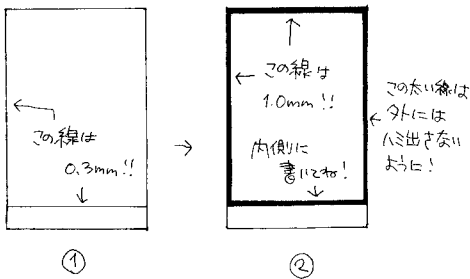 この線は
0.3mm!!
①
→
この線は
1.0mm!!
内側に
書いてね!
②
この太い線は
外には
ハミ出さない
ように!